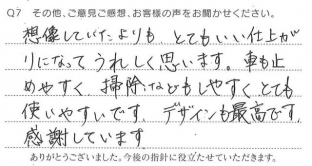 Q7 その他、ご意見ご感想、お客様の声をお聞かせください。
想像していたよりも、とてもいい仕上が
りになってうれしく思います。車も止
めやすく、掃除などもしやすくとても
使いやすいです。デザインも最高です。
感謝しています
ありがとうございました。今後の指針に役立たせていただきます。